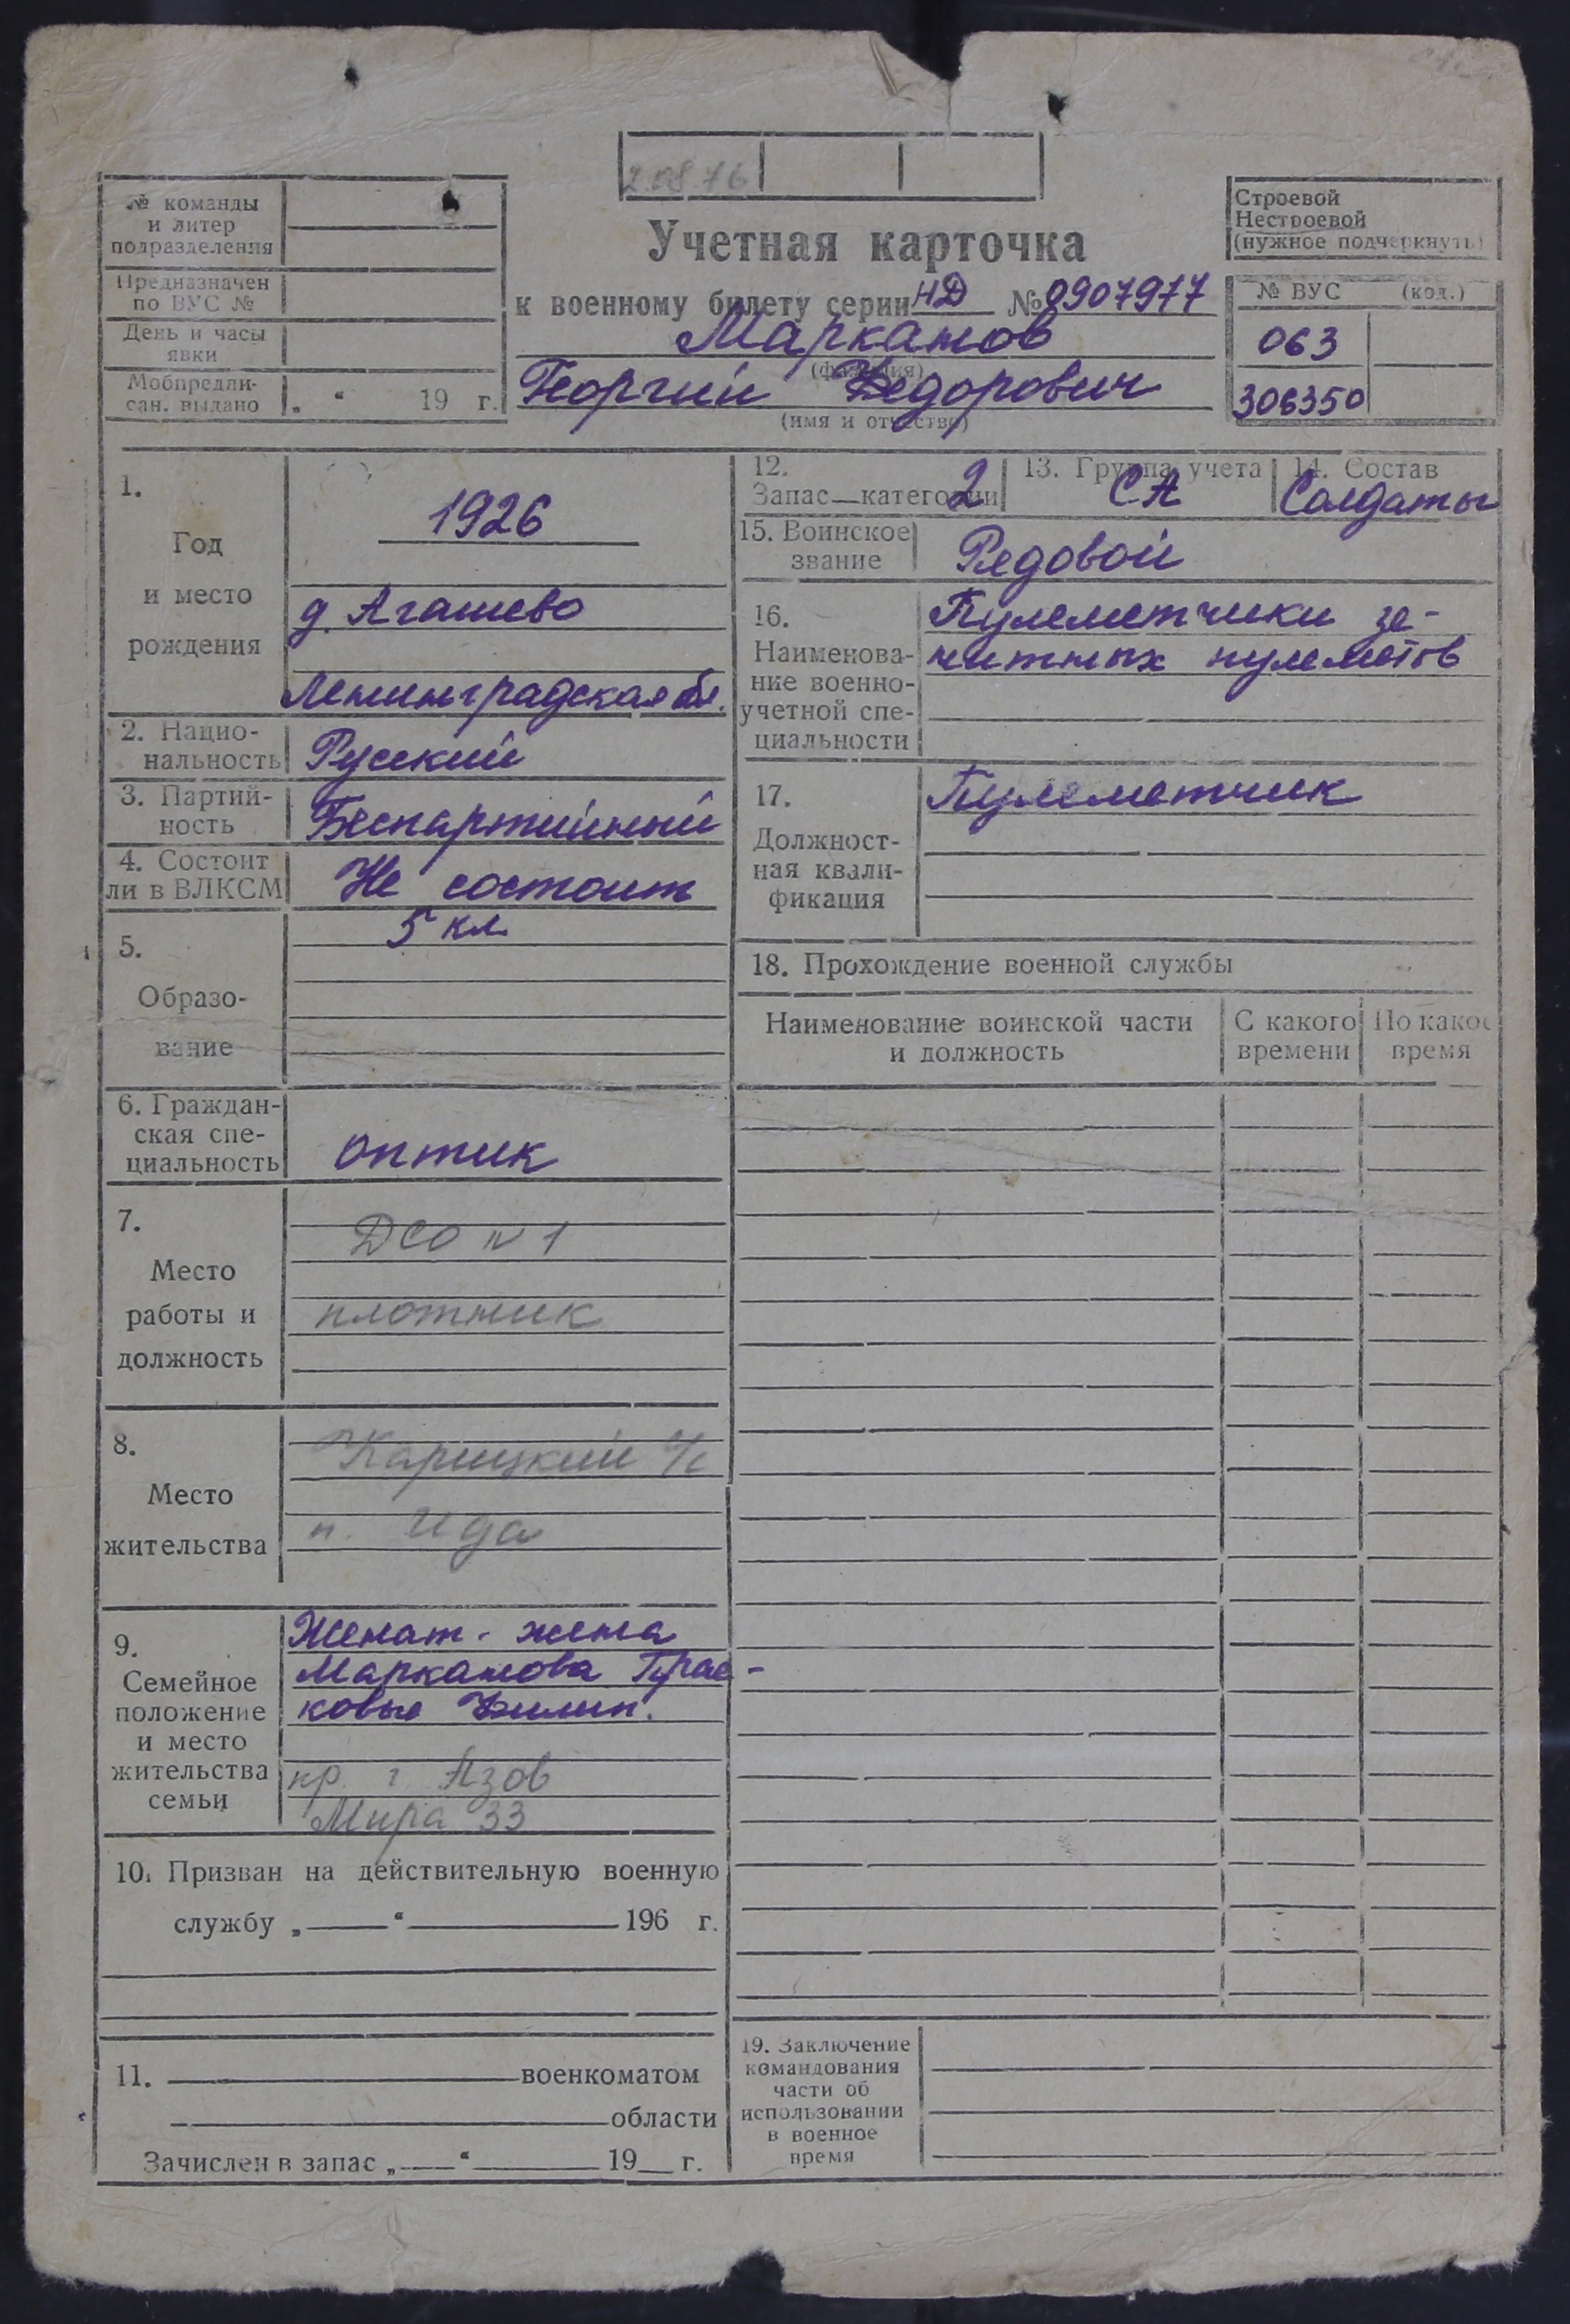 2.08.76
№ команды
и литер
подразделения
Предназначен
по ВУС №
День и часы
явки
Мобпредпи-
сан. выдано „ “ 19 г.
Учетная карточка
к военному билету серии НД № 0907977
Маркамов
(фамилия)
Георгий Федорович
(имя и отчество)
Строевой
Нестроевой
(нужное подчеркнуть)
№ ВУС (код.)
063
306350
1.
Год
и место
рождения
1926
д. Агашево
Ленинградская обл.
2. Нацио-
нальность Русский
3. Партий-
ность Беспартийный
4. Состоит
ли в ВЛКСМ Не состоит
5.
Образо-
вание
5 кл
6. Граждан-
ская спе-
циальность
оптик
7.
Место
работы и
должность
ДСО N 1
плотник
8.
Место
жительства
Карицкий с/с
п. Ида
9.
Семейное
положение
и место
жительства
семьи
Женат - жена
Маркамова Прас-
ковья Филип.
кр. г. Азов
Мира 33
10. Призван на действительную военную
службу „ “ 196 г.
11. военкоматом
области
Зачислен в запас „ “ 19 г.
12.
Запас—категории 2
13. Группа учета
СА
14. Состав
Солдаты
15. Воинское
звание Рядовой
16.
Наименова-
ние военно-
учетной спе-
циальности
Пулеметчики зе-
нитных пулеметов
17.
Должност-
ная квали-
фикация
Пулеметчик
18. Прохождение военной службы
Наименование воинской части
и должность
С какого
времени
По какое
время
19. Заключение
командования
части об
использовании
в военное
время